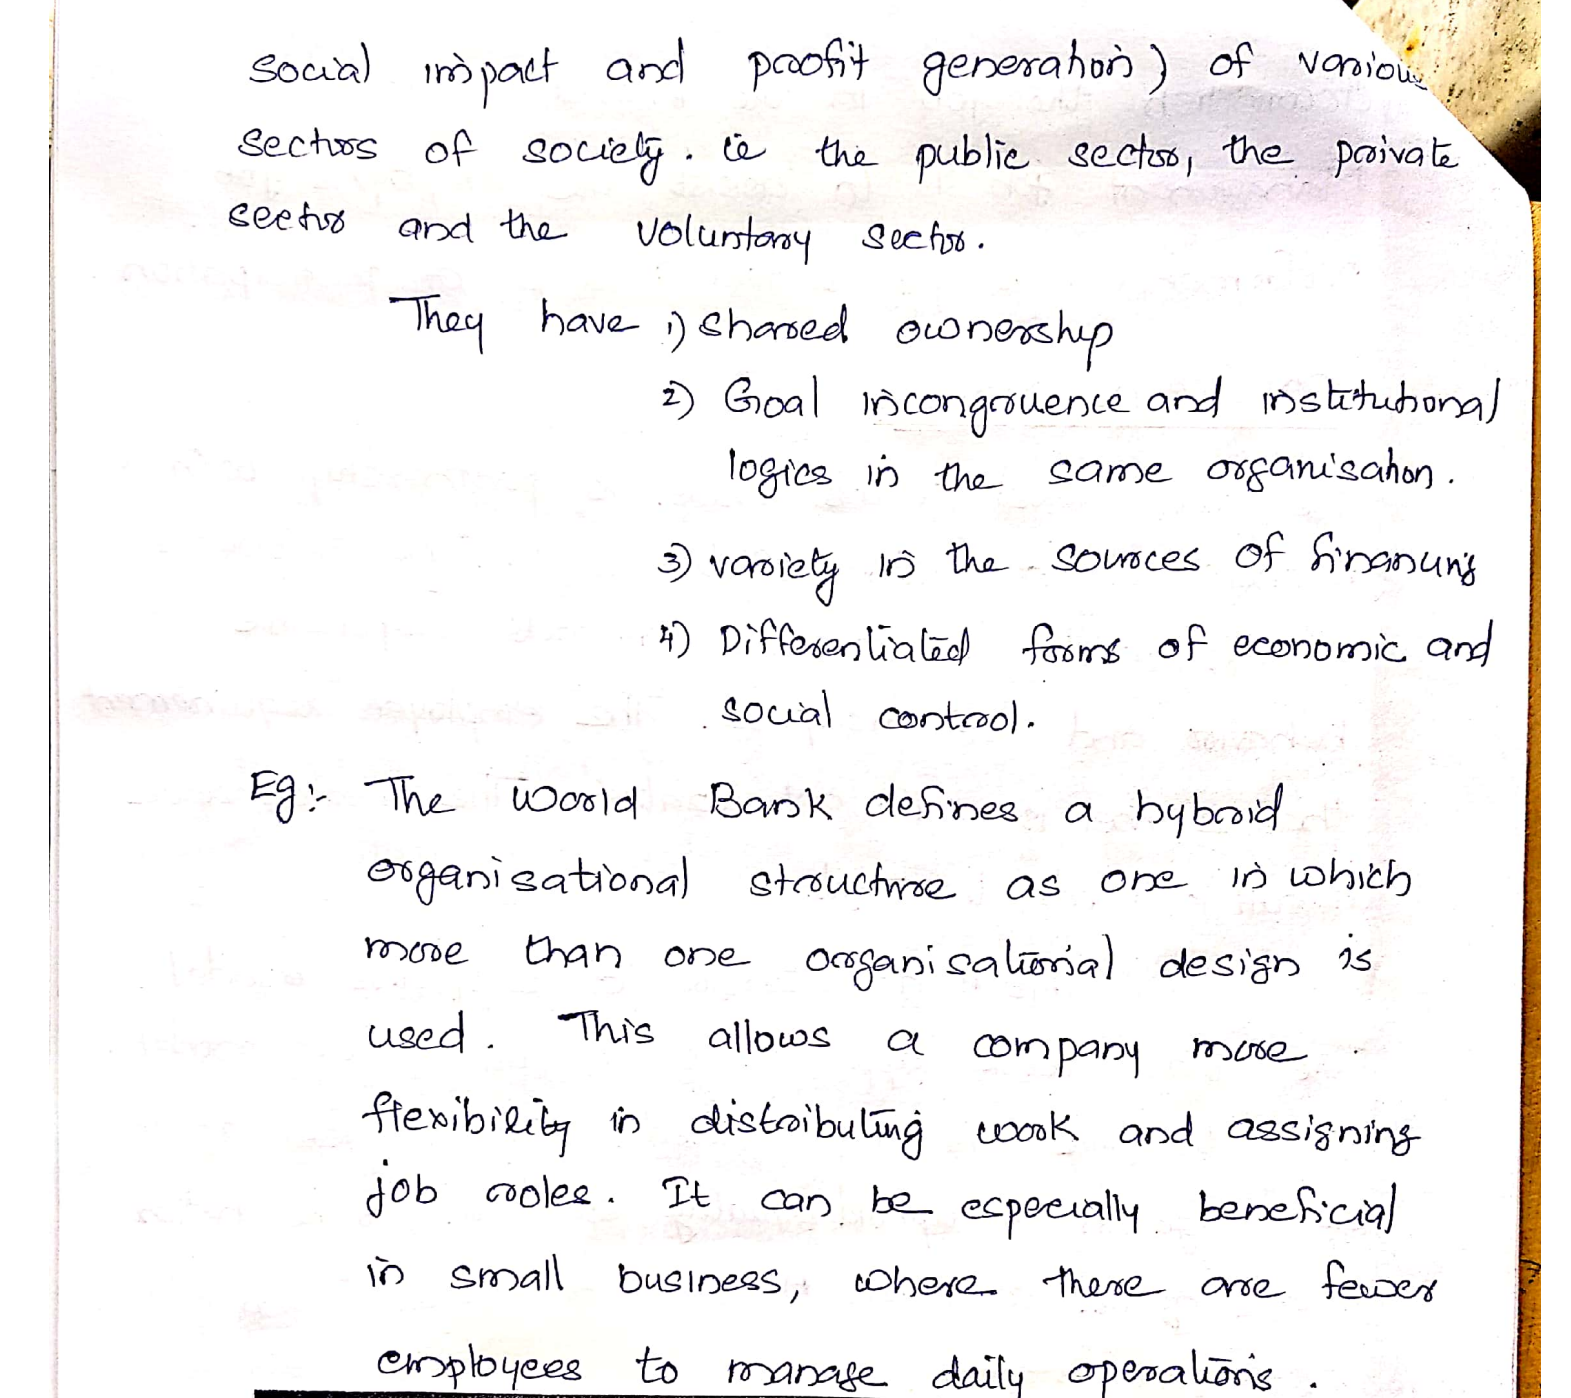 social impact and profit generation) of various
sectors of society. ie the public sector, the private
sector and the voluntary sector.
They have 1) shared ownership
2) Goal incongruence and institutional
logics in the same organisation.
3) variety in the sources of financing
4) Differentiated forms of economic and
social control.
Eg:- The World Bank defines a hybrid
organisational structure as one in which
more than one organisational design is
used. This allows a company more
flexibility in distributing work and assigning
job roles. It can be especially beneficial
in small business, where there are fewer
employees to manage daily operations.